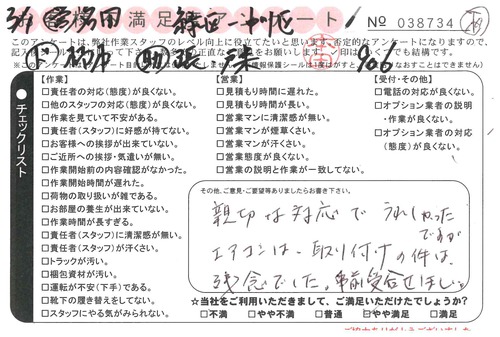 満足
ート
No 038734
このアンケートは、弊社作業スタッフのレベル向上に役立てたいと思います。否定的なアンケートになりますので、
906
チェックリスト
【作業】
□責任者の対応(態度)が良くない。
□他のスタッフの対応(態度)が良くない。
□作業を見ていて不安がある。
□責任者(スタッフ)に好感が持てない。
□お客様への挨拶が出来ていない。
□ご近所への挨拶・気遣いが無い。
□作業開始前の内容確認がなかった。
□作業開始時間が遅れた。
□荷物の取り扱いが雑である。
□お部屋の養生が出来ていない。
□作業時間が長すぎる。
□責任者(スタッフ)に清潔感が無い。
□責任者(スタッフ)が汗くさい。
□トラックが汚い。
□梱包資材が汚い。
□運転が不安(下手)である。
□靴下の履き替えをしてない。
□スタッフにやる気がみられない。
【営業】
□見積もり時間に遅れた。
□見積もり時間が長い。
□営業マンに清潔感が無い。
□営業マンが煙草くさい。
□営業マンが汗くさい。
□営業態度が良くない。
□営業の説明と作業が一致してない。
【受付・その他】
□電話の対応が良くない。
□オプション業者の説明
・作業が良くない。
□オプション業者の対応
(態度)が良くない。
その他、ご意見・ご要望等ありましたらお書き下さい。
親切な対応で うれしかった
ですが
エアコンは、取り付けの件は、
残念でした。事前
☆当社をご利用いただきまして、ご満足いただけたでしょうか?
□不満 □やや不満 □普通 □やや満足 □満足